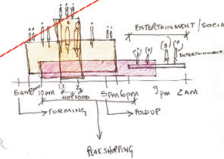 ENTERTAINMENT / SOCIA
ENTERTAINMENT
5am 10am
HOT FOOD
5PM 6PM
9PM 2AM
FORMING
FOLDUP
PEAK SHOPPING